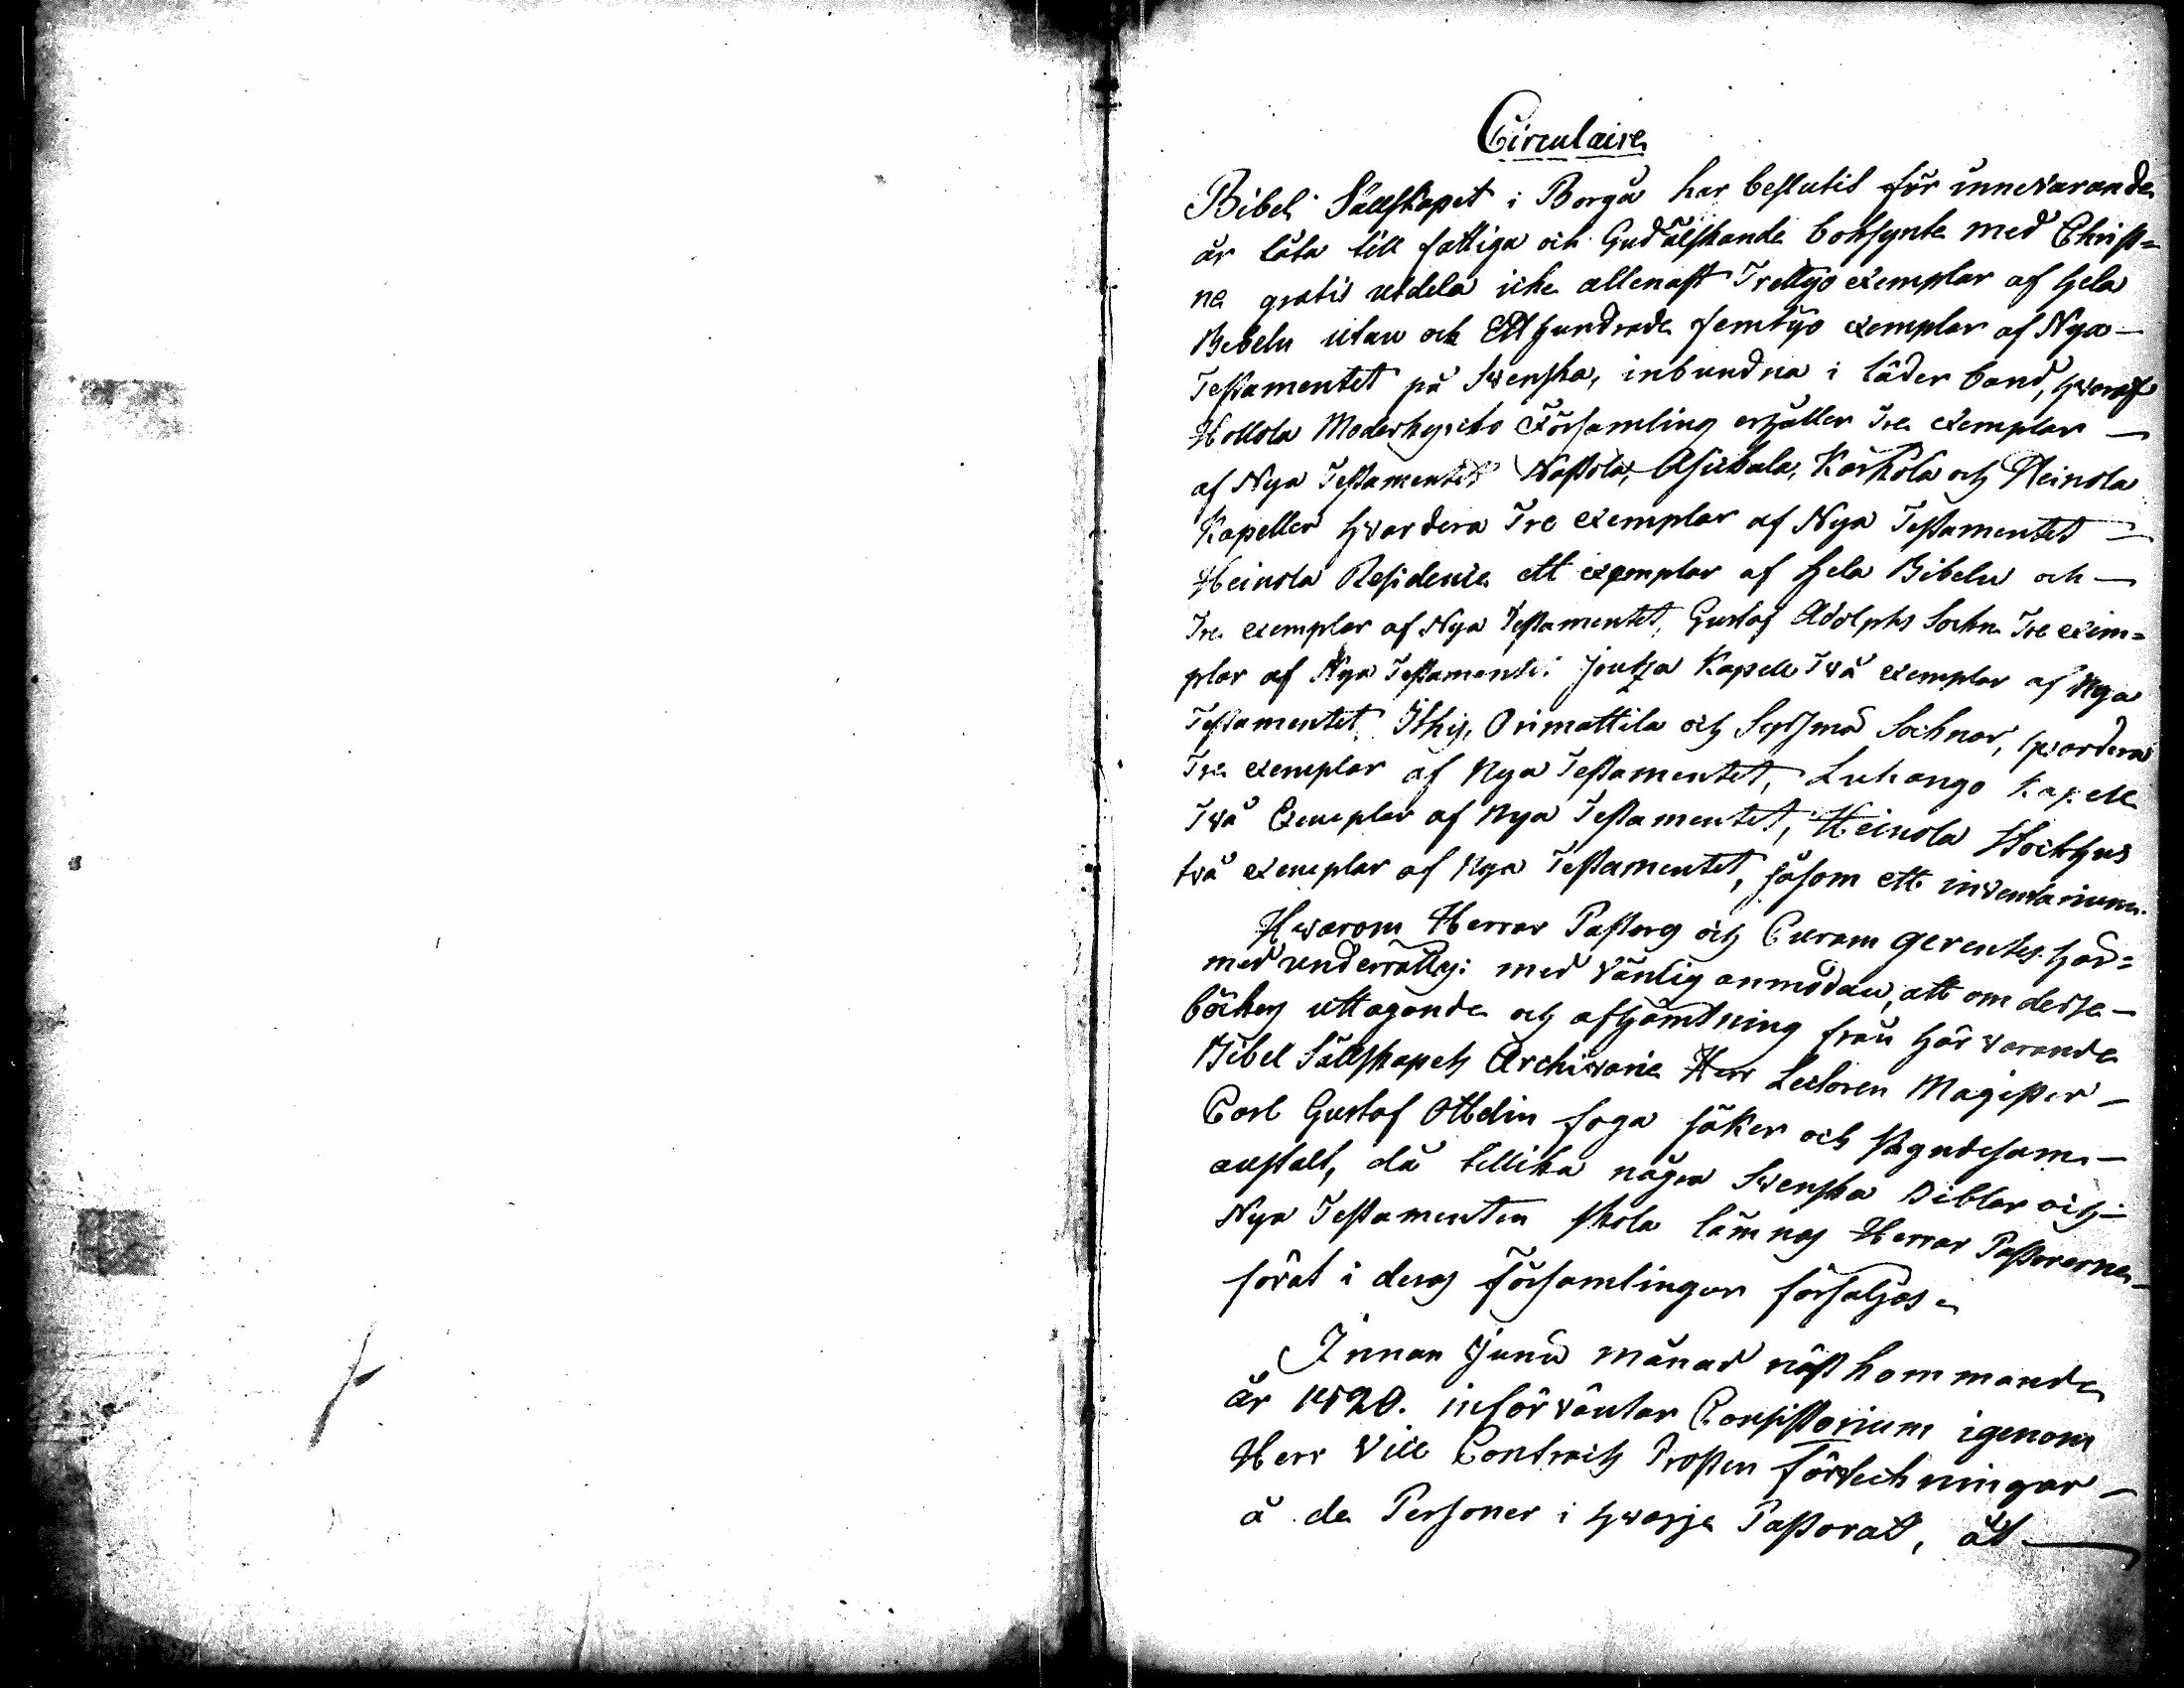 Circulaire
Bibel Sällskapet i Borgå har beslutit för innewarande
år låta till fattiga och Gudälskande boksynte med Christ=
na gratis utdela icke allenast Trettijo exemplar af hela
Bibeln utan och Etthundrade femtijo exemplar af Nya —
Testamentet på Swenska, inbundna i läder band, hwaraf
Hollola Moderkyrko Församling erhåller Tre exemplar —
af Nya Testamentet Nastola, Asikala, Kärkölä och Heinola
Kapeller hwardera Tre exemplar af Nya Testamentet —
Heinola Residence ett exemplar af hela Bibeln och —
Tre exemplar af Nya Testamentet, Gustaf Adolphs Sockn Tre exem=
plar af Nya Testamente: Joutza Kapell Twå exemplar af Nya
Testamentet Ithis, Orimattila och Sysmä Socknar, hwardera
Tre exemplar af Nya Testamentet, Luhango Kapell
Twå Exemplar af Nya Testamentet, Heinola
två exemplar af Nya Testamentet, såsom ett inventarium.
Hwarom Herrar Pastorer och Curam gerentes här=
med underrättas: med wänlig anmodan, att om dessa —
böckers uttagande och afhämtning från här warande
Bibel Sällskapets Archivarie Herr Lectoren Magister —
Carl Gustaf Ottelin foga säker och skyndesam —
anstalt, då tillika några Swenska Biblar och —
Nya Testamenten skola lämnas Herrar Pastorerne —
förat i deras församlingar försäljas.
Innan Junii månad nästkommande
år 1820. införwäntar Consistorium igenom
Herr Vice Contracts Prosten förteckningar —
å de Personer i hwarje Pastorat, åt —